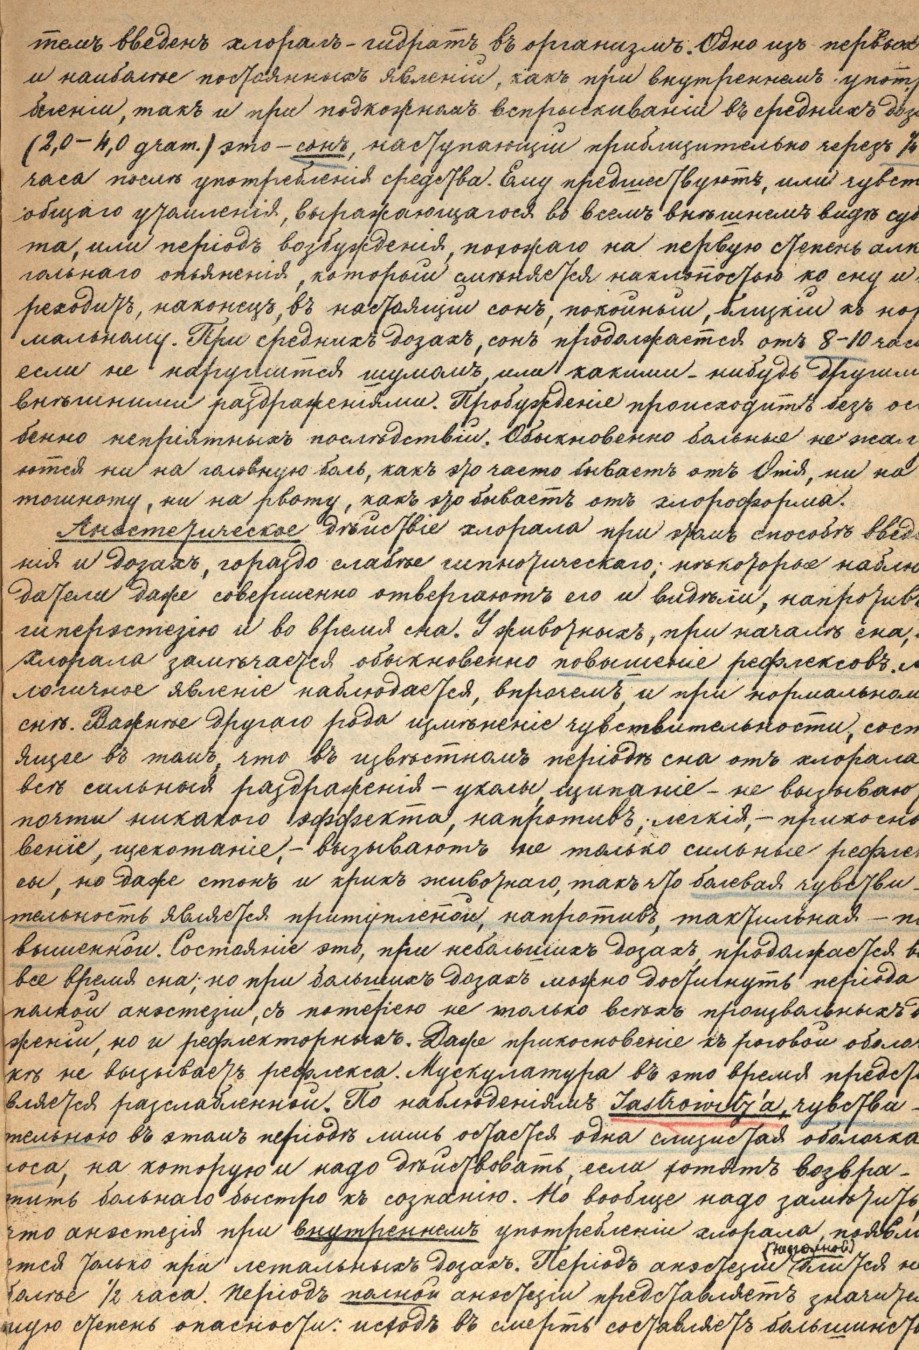 тѣмъ введенъ хлоралъ-гидратъ въ организмъ. Одно изъ первых
и наиболѣе постоянныхъ явленій, какъ при внутреннемъ употр
бленіи, такъ и при подкожномъ вспрыскиваніи въ среднихъ доза
(2,0–4,0 gram.) это – сонъ, наступающій приблизительно черезъ
часа послѣ употребленія средства. Ему предшествуютъ, или чувст
общаго утомленія, выражающагося во всемъ внѣшнемъ видѣ субъ
та, или періодъ возбужденія, похожаго на первую степень алко
гольнаго опьяненія, который смѣняется наклонностью ко сну и
реходитъ, наконецъ, въ настоящій сонъ, покойный, близкій къ нор
мальному. При среднихъ дозахъ, сонъ продолжается отъ 8–10 часо
если не нарушится шумомъ, или какими-нибудь другими
внѣшними раздраженіями. Пробужденіе происходитъ безъ осо
бенно непріятныхъ послѣдствій. Обыкновенно больные не жалу
ются ни на головную боль, какъ это часто бываетъ отъ Опія, ни на
тошноту, ни на рвоту, какъ это бываетъ отъ хлороформа.
Анэстезическое дѣйствіе хлорала при этомъ способѣ введе
нія и дозахъ, гораздо слабѣе гипнотическаго; нѣкоторые наблю
датели даже совершенно отвергаютъ его и видѣли, напротивъ
гиперэстезію и во время сна. У животныхъ, при началѣ сна,
хлорала замѣчается обыкновенно повышеніе рефлексовъ.
логичное явленіе наблюдается, впрочемъ, и при нормальномъ
снѣ. Важнѣе другаго рода измѣненіе чувствительности, состо
ящее въ томъ, что въ извѣстномъ періодѣ сна отъ хлорала
всѣ сильныя раздраженія – уколы, щипаніе – не вызываю
почти никакого эффекта, напротивъ, легкія, – прикосно
веніе, щекотаніе, – вызываютъ не только сильные рефлек
сы, но даже стонъ и крикъ животнаго, такъ что болевая чувстви-
тельность является притупленной, напротивъ, тактильная – по
вышенной. Состояніе это, при небольшихъ дозахъ, продолжается во
все время сна; но при большихъ дозахъ можно достигнуть періода
полной анэстезіи, съ потерею не только всѣхъ произвольныхъ дви
женій, но и рефлекторныхъ. Даже прикосновеніе къ роговой оболоч
кѣ не вызываетъ рефлекса. Мускулатура въ это время предста
вляется разслабленной. По наблюденіямъ Jastrowitz'а, чувстви-
тельною въ этомъ періодѣ лишь остается одна слизистая оболочка
носа, на которую и надо дѣйствовать, если хотятъ возвра-
тить больнаго быстро къ сознанію. Но вообще надо замѣтить,
что анэстезія при внутреннемъ употребленіи хлорала, появля
ется только при летальныхъ дозахъ. Періодъ анэстезіи (неполной) длится не
болѣе 1/2 часа. Періодъ полной анэстезіи представляетъ значитель
ную степень опасности: исходъ въ смерть составляетъ большинств